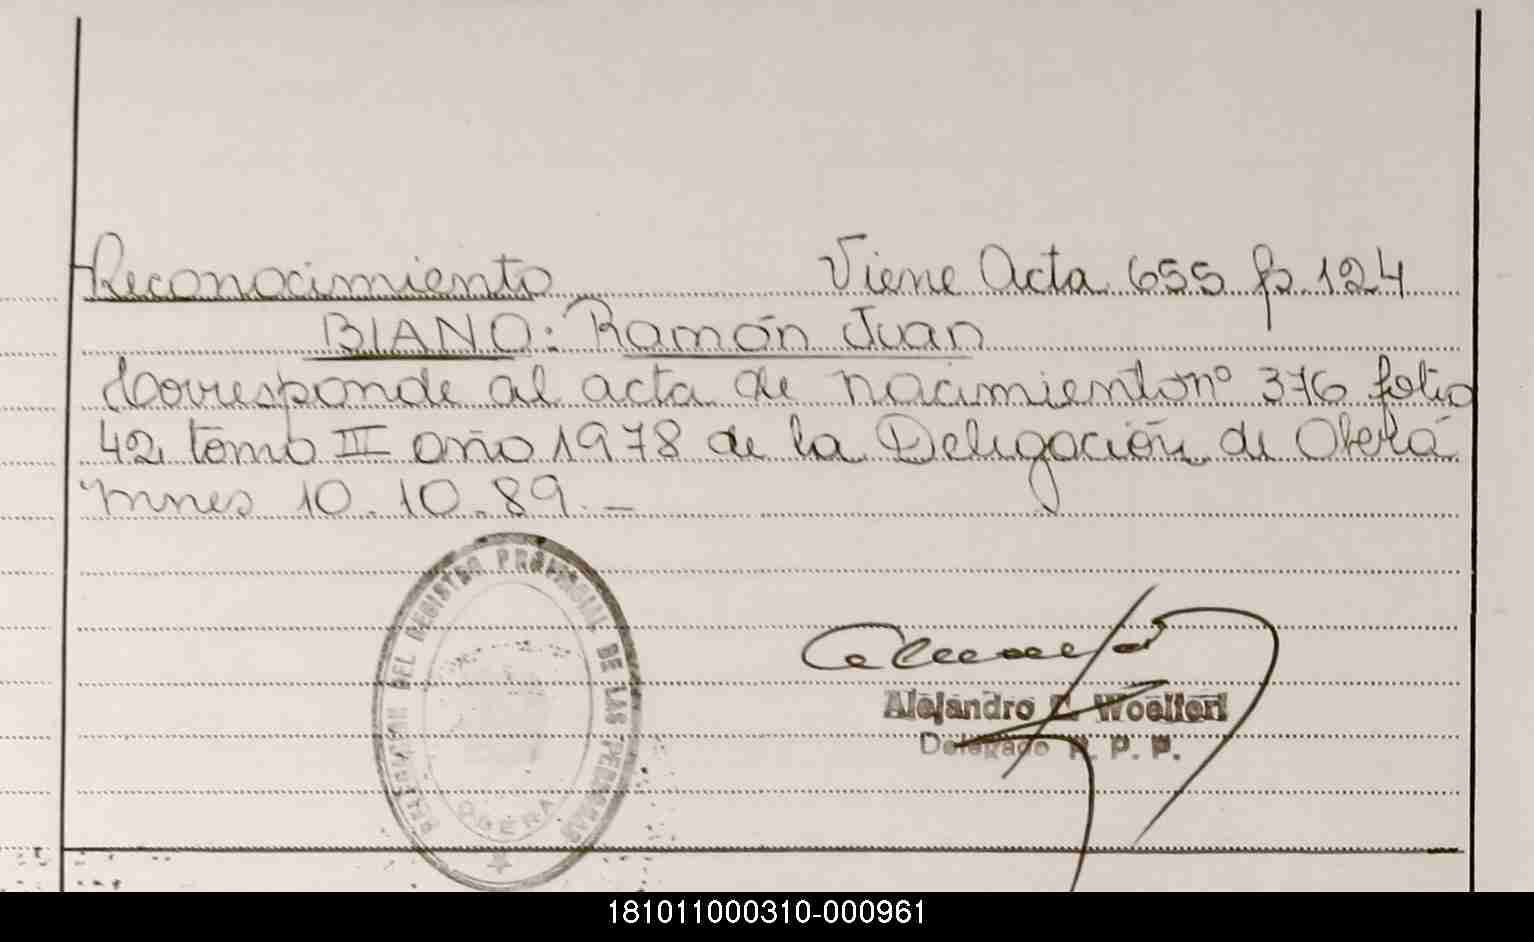 Reconocimiento Viene Acta 655 fs. 124
BIANO: Ramón Juan
Corresponde al acta de nacimiento nº 376 folio
42 tomo III año 1978 de la Delegación de Oberá
Mnes 10.10.89.-
DELEGACION DEL REGISTRO PROVINCIAL DE LAS PERSONAS
OBERA
Alejandro Woelfert
Delegado R. P. P.
181011000310-000961